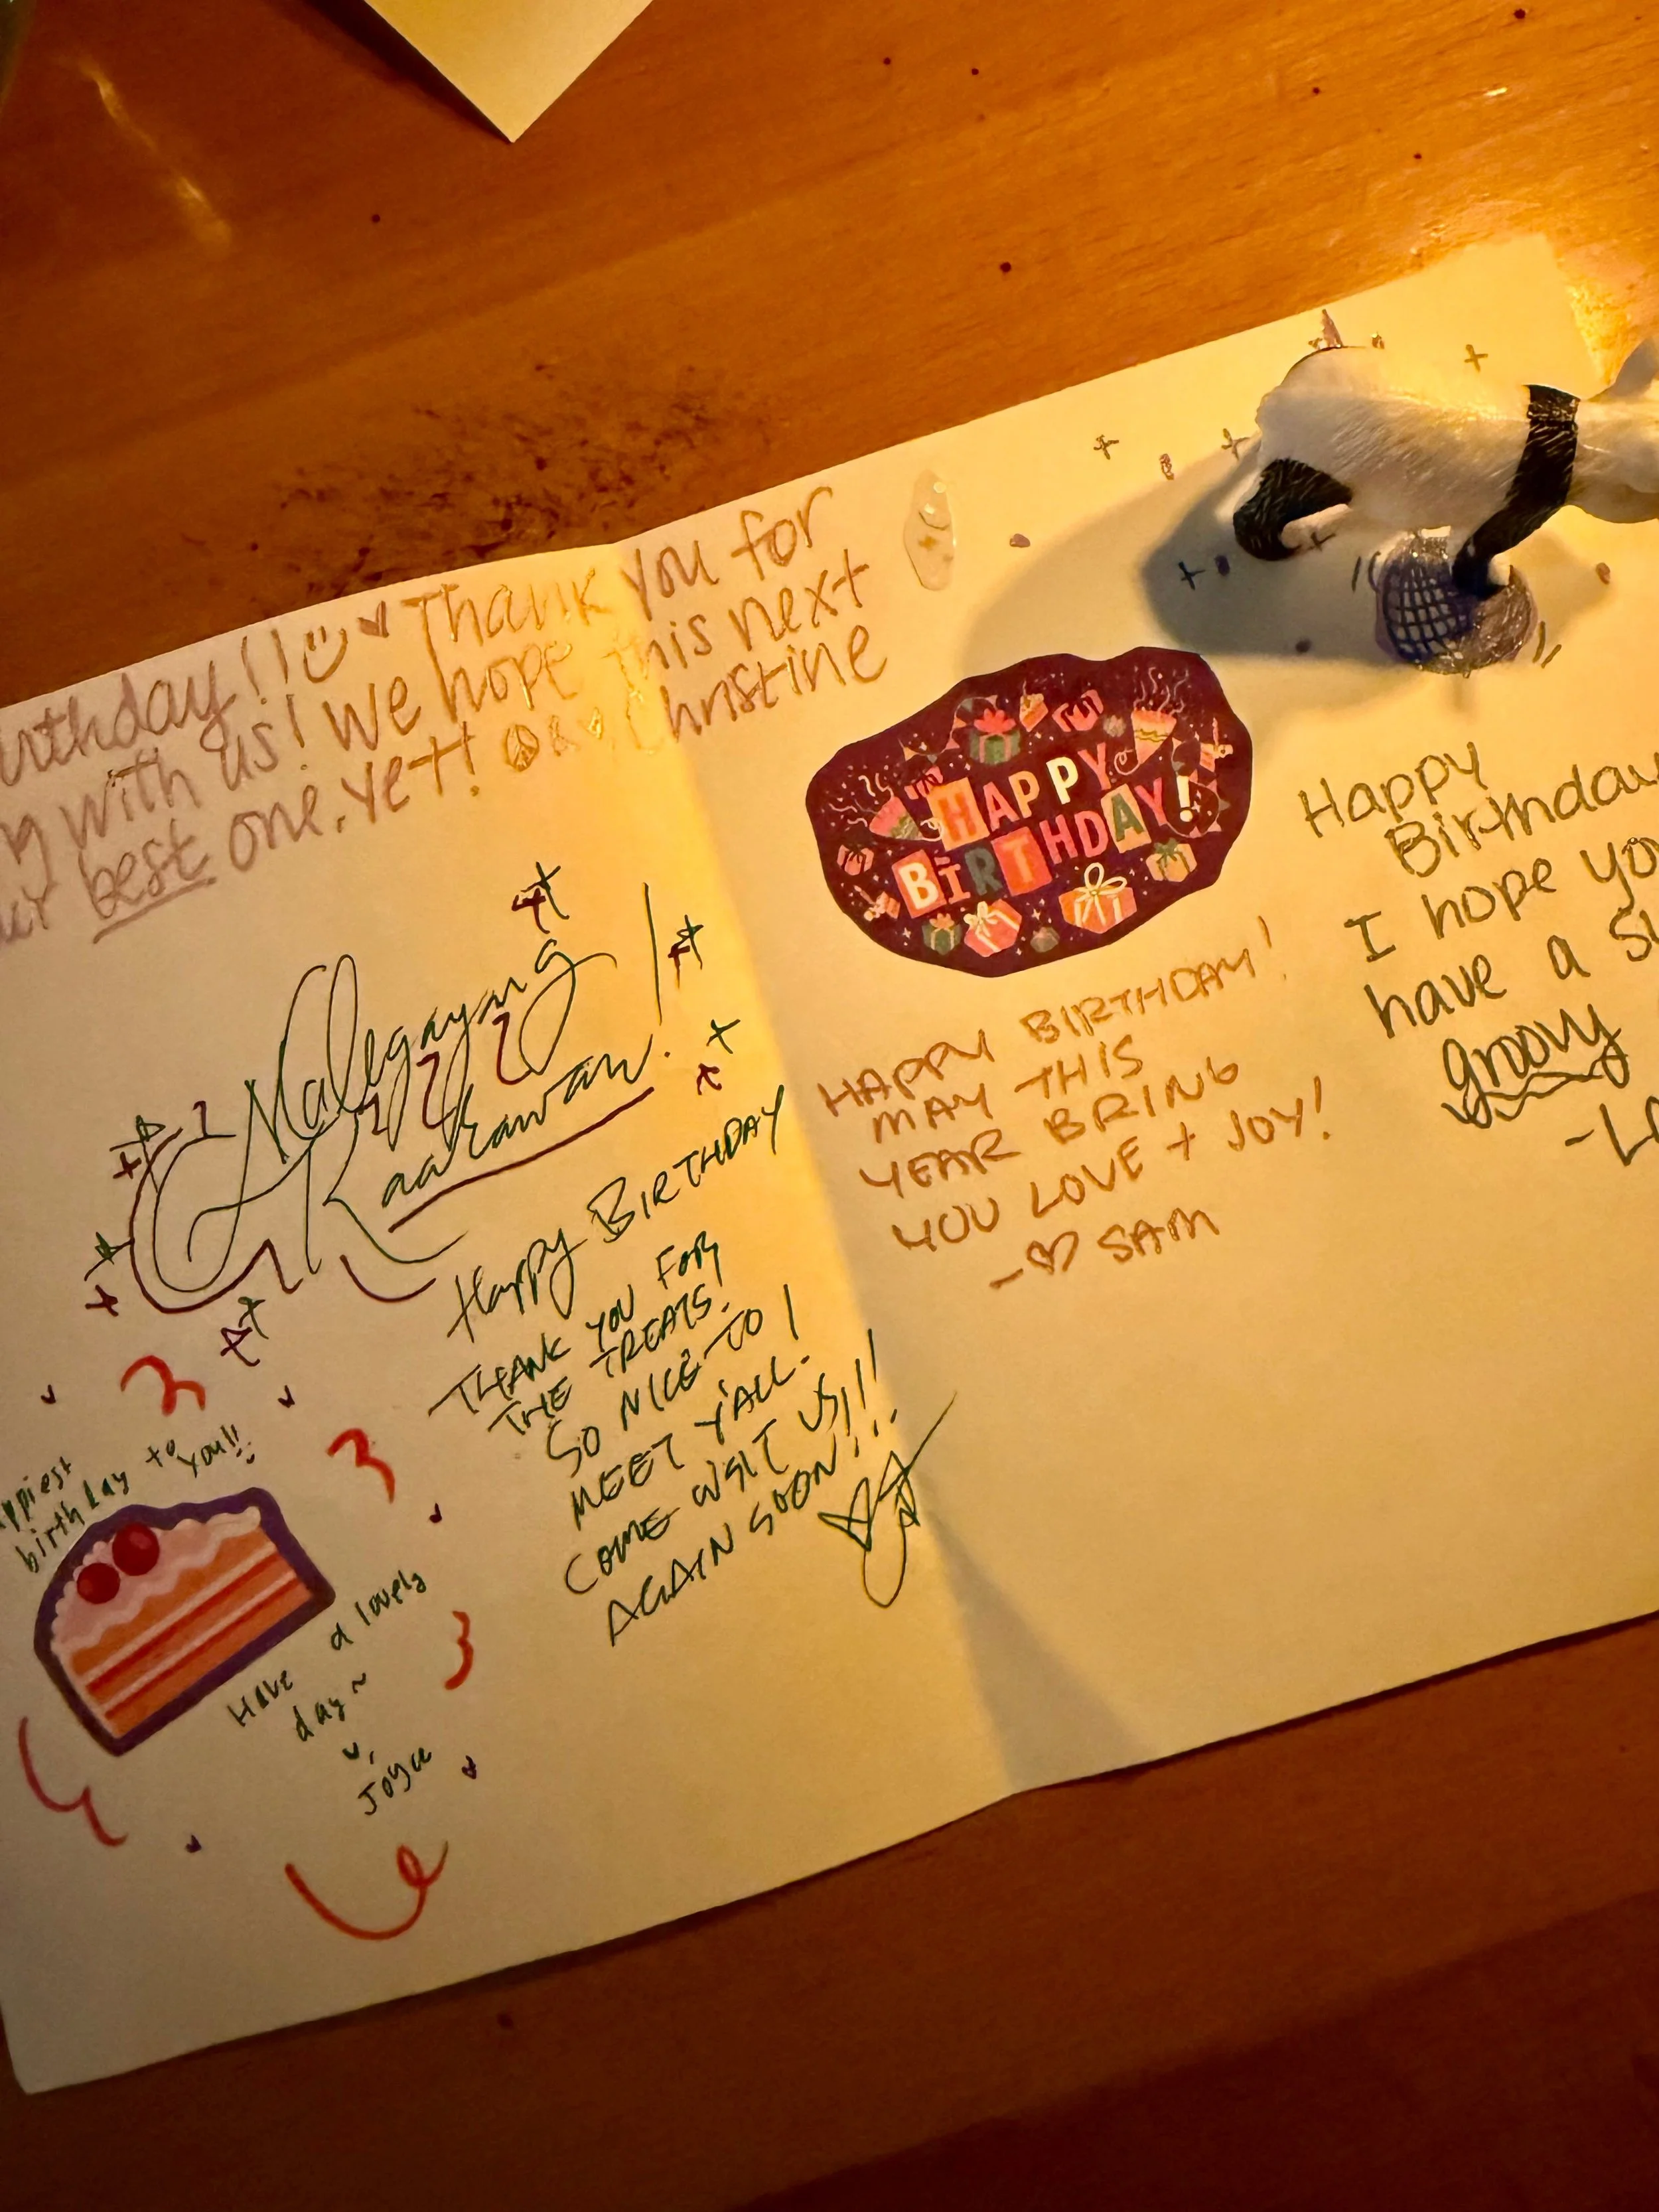 birthday!! Thank you for
with us! We hope this next
best one, yet! & Christine
Maligayang
Kaarawan!
Happy BIRTHDAY
THANK YOU FOR
THE TREATS!
SO NICE TO
MEET Y'ALL!
COME VISIT US
AGAIN SOON!!!
birthday to you!!
Have a lovely
day~
Joyce
HAPPY
BIRTHDAY!
HAPPY BIRTHDAY!
MAY THIS
YEAR BRING
YOU LOVE + JOY!
- SAM
Happy
Birthday
I hope
have a
groovy